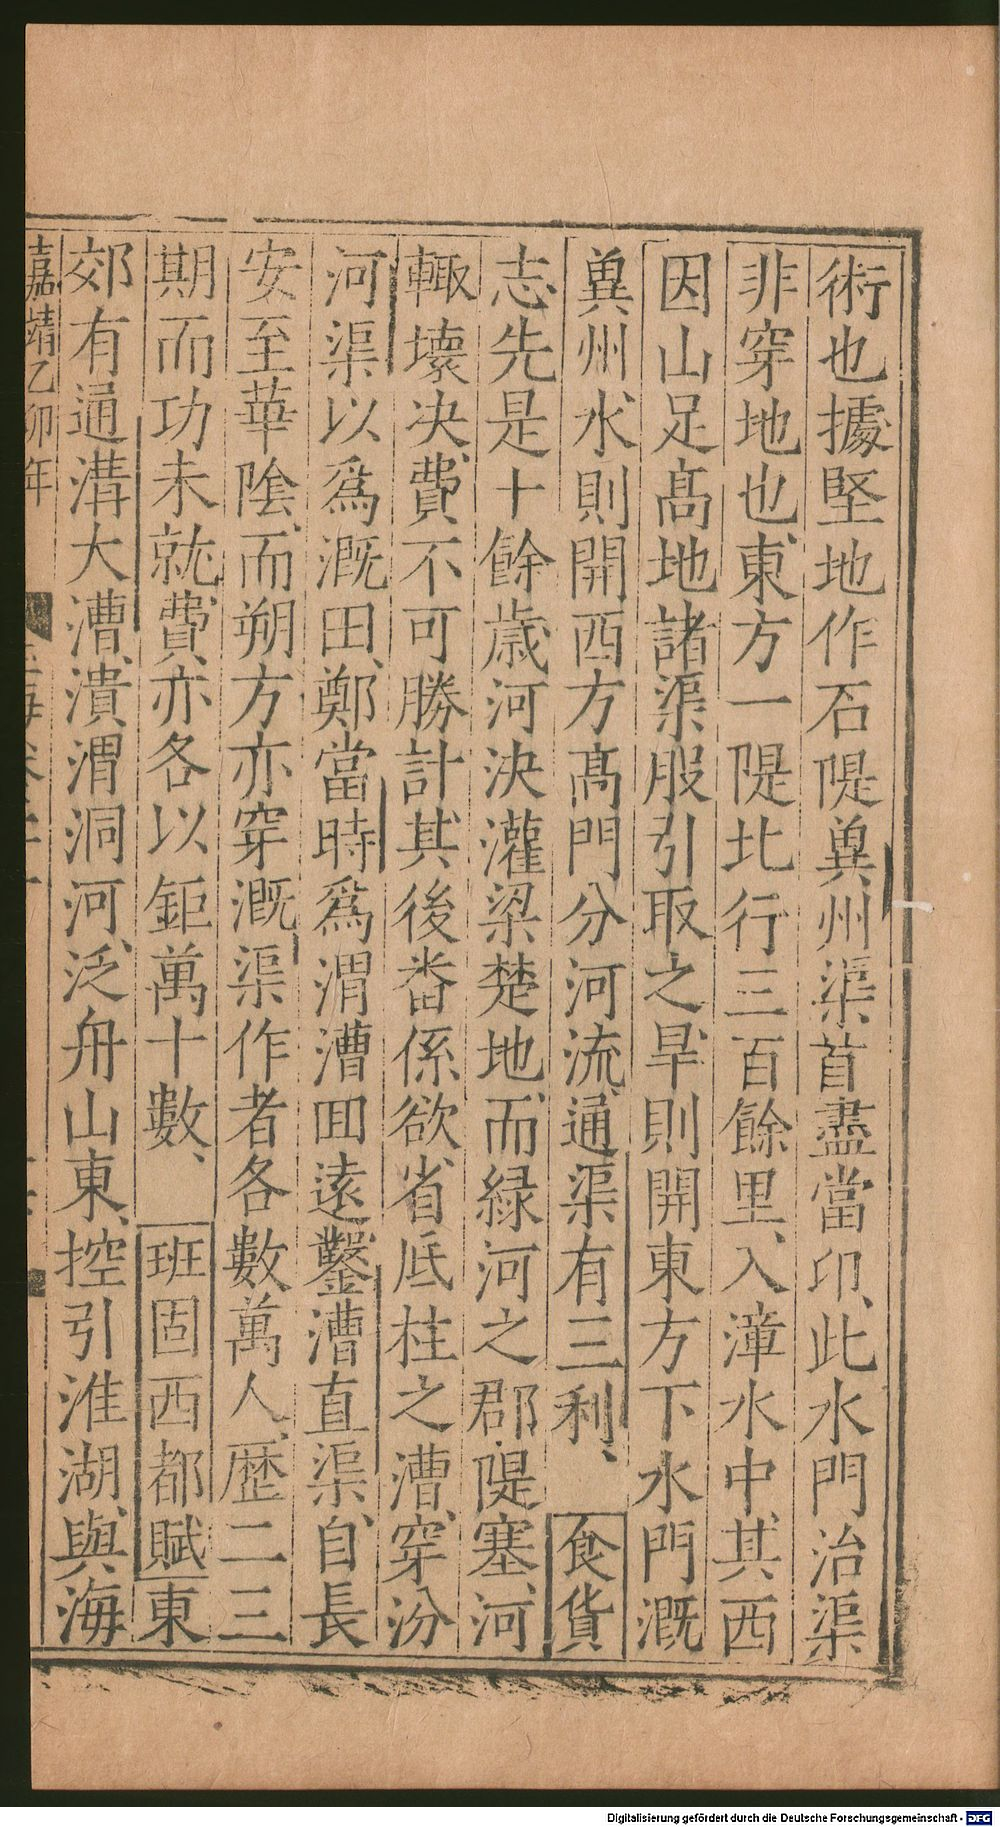 術也據堅地作石隄兾州渠首盡當卬此水門治渠
非穿地也東方一隄北行三百餘里入漳水中其西
因山足髙地諸渠股引取之旱則開東方下水門溉
兾州水則開西方髙門分河流通渠有三利、食貨
志先是十餘歳河決灌梁楚地而緑河之郡隄塞河
輙壞决費不可勝計其後畨係欲省底柱之漕穿汾
河渠以爲溉田鄭當時爲渭漕囬遠鑿漕直渠自長
安至華隂而朔方亦穿溉渠作者各數萬人歴二三
期而功未就費亦各以鉅萬十數、班固西都賦東
郊有通溝大漕潰渭洞河泛舟山東控引淮湖與海
嘉靖乙卯年
Digitalisierung gefördert durch die Deutsche Forschungsgemeinschaft - DFG